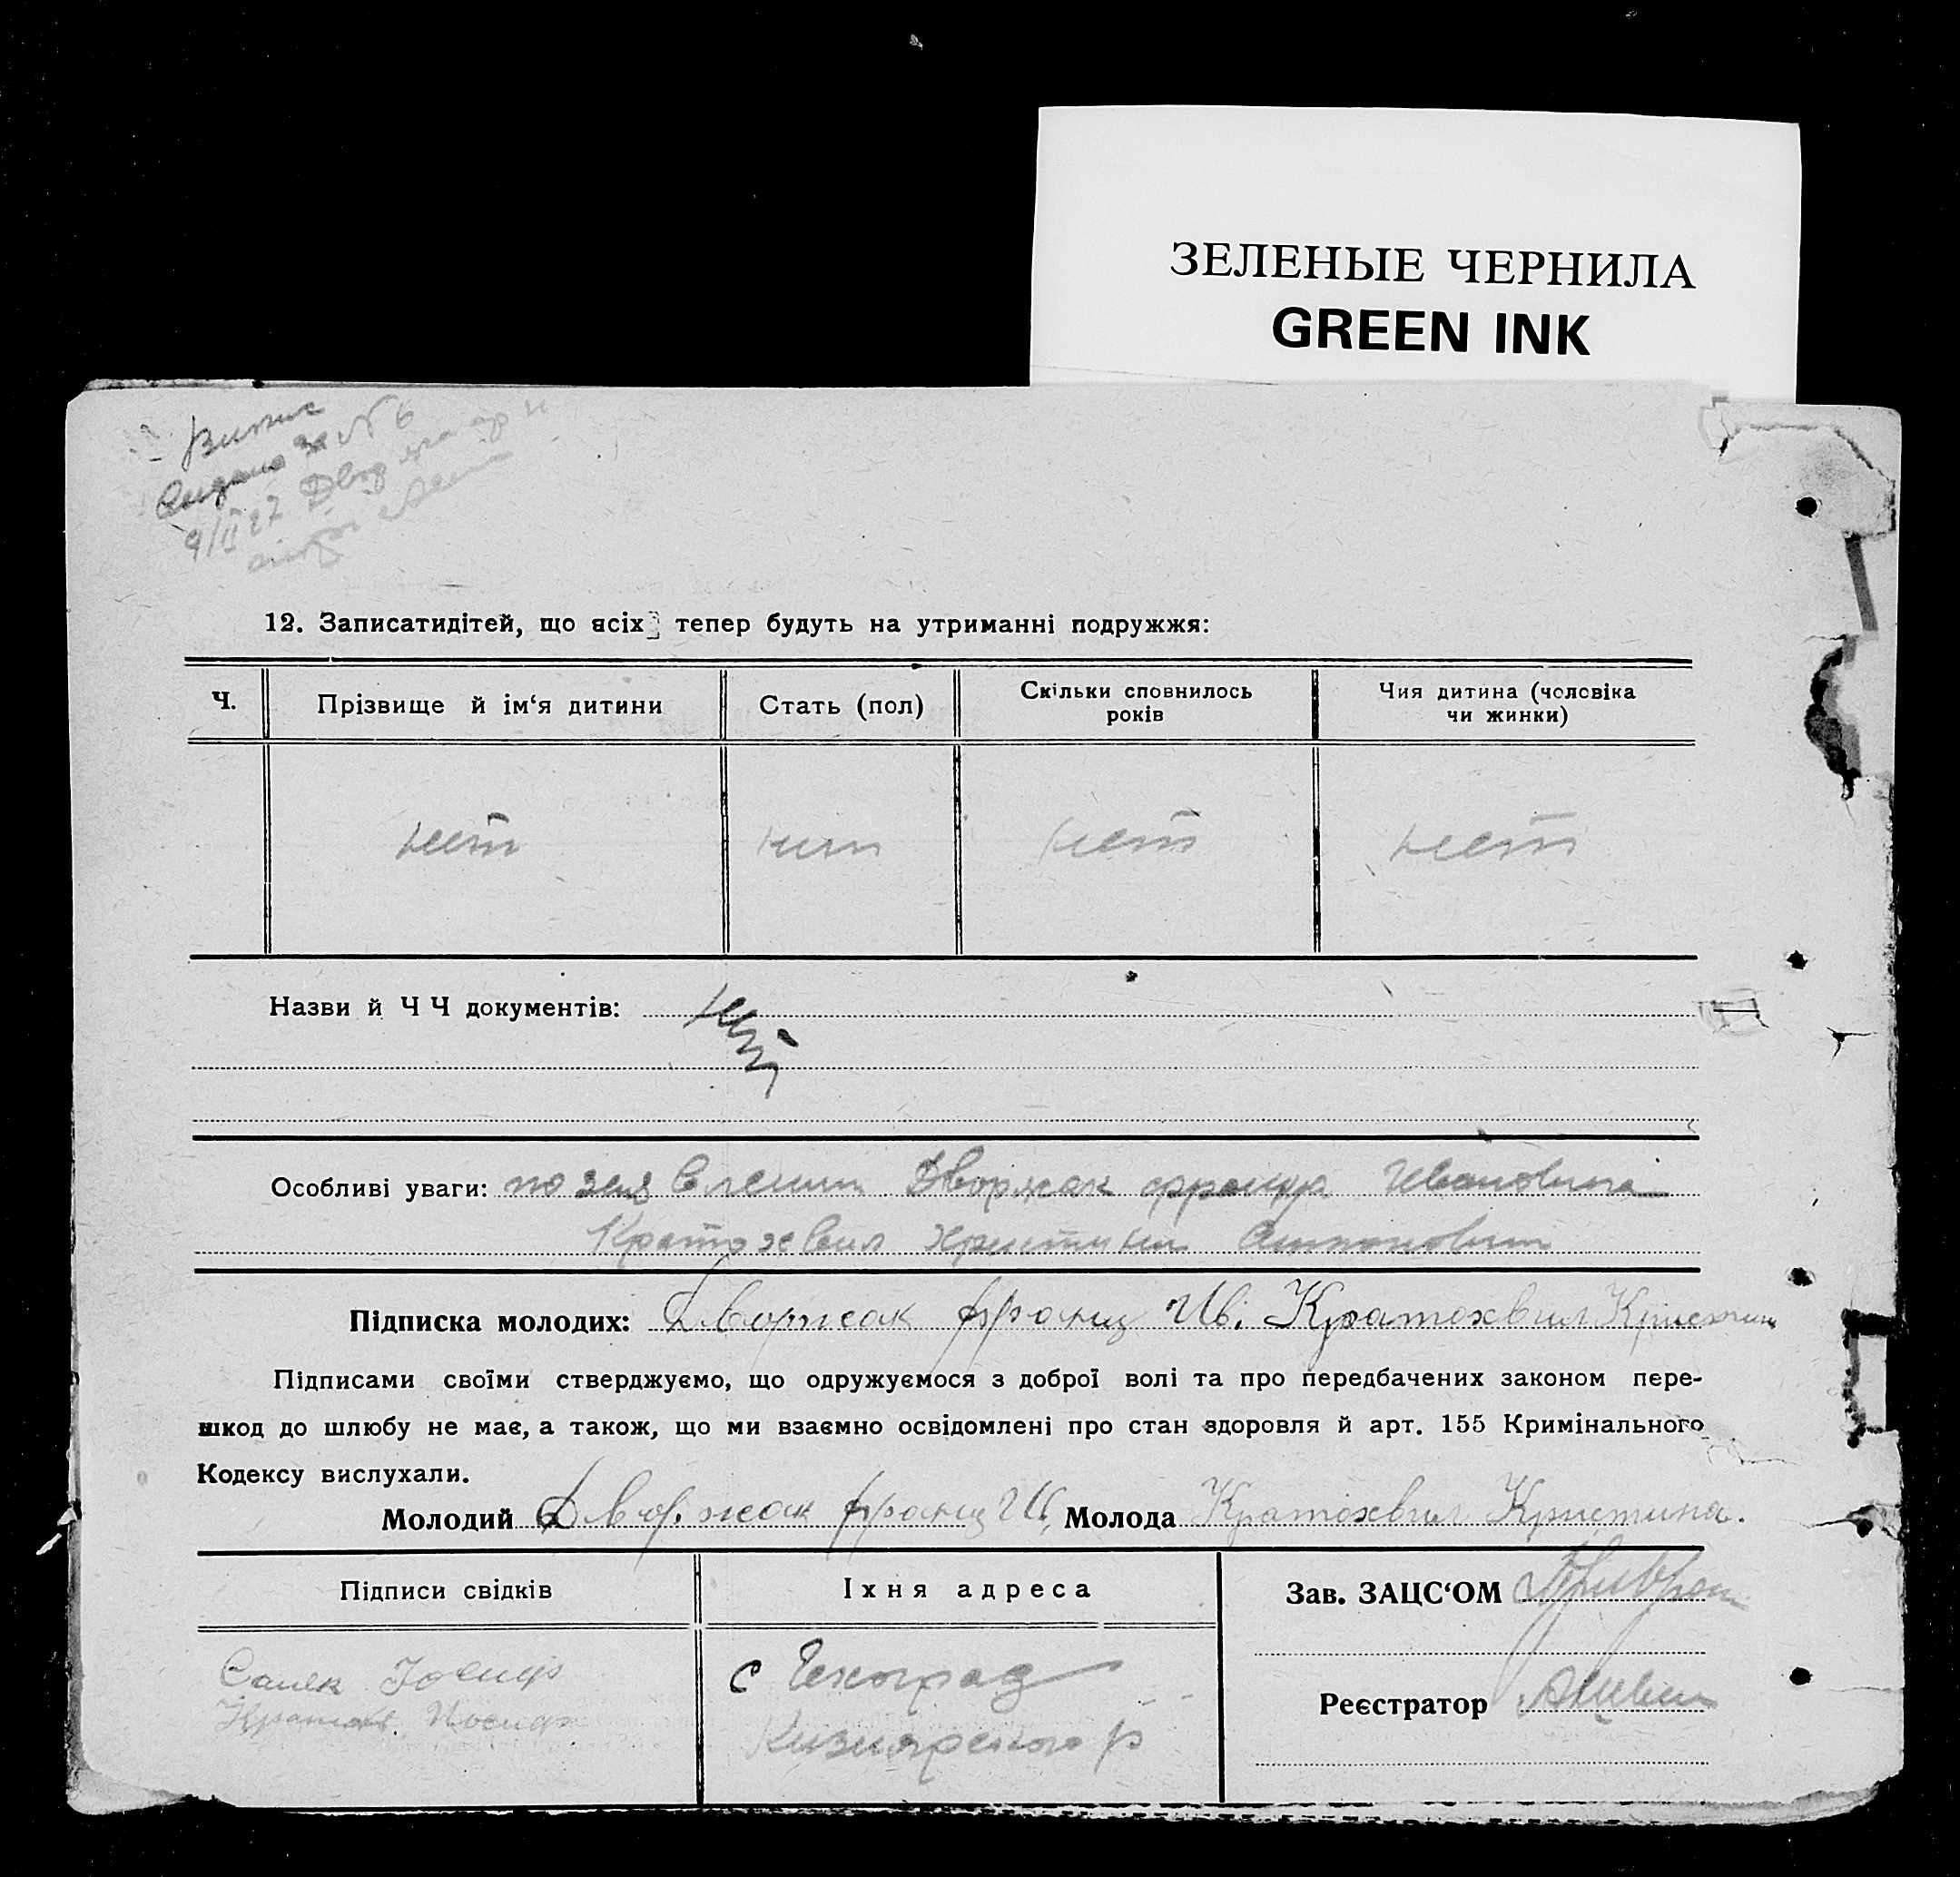 ЗЕЛЕНЫЕ ЧЕРНИЛА
GREEN INK
Випис
видано за № 6
9/II 27
12. Записатидітей, що всіх тепер будуть на утриманні подружжя:
Ч. Прізвище й ім‘я дитини Стать (пол) Скільки сповнилось років Чия дитина (чоловіка чи жинки)
нет нет нет нет
Назви й Ч Ч документів: нет
Особливі уваги: по заявлению Дворжак Франца Ивановича
Кратохвил Христины
Підписка молодих: Дворжак Франц Ив. Кратохвил Кристина
Підписами своїми стверджуємо, що одружуємося з доброї волі та про передбачених законом пере-
шкод до шлюбу не має, а також, що ми взаємно освідомлені про стан здоровля й арт. 155 Кримінального
Кодексу вислухали.
Молодий Дворжак Франц И. Молода Кратохвил Кристина.
Підписи свідків Їхня адреса Зав. ЗАЦС‘ОМ
Йосиф с Чехоград
Реєстратор
Кизиярского р